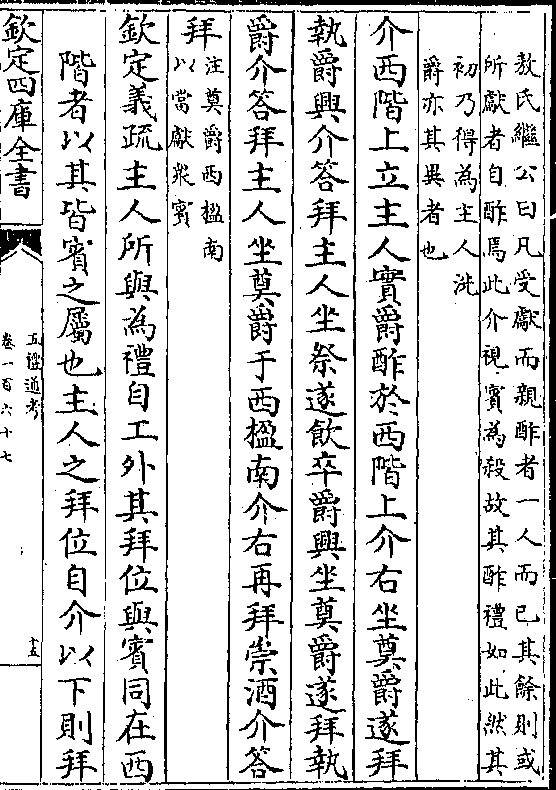 敖氏繼公曰凡受獻而親酢者一人而已其餘則或
所獻者自酢焉此介視賓為殺故其酢禮如此然其
初乃得為主人洗
爵亦其異者也
介西階上立主人實爵酢於西階上介右坐奠爵遂拜
執爵興介答拜主人坐祭遂飲卒爵興坐奠爵遂拜執
爵介答拜主人坐奠爵于西楹南介右再拜崇酒介答
拜
注奠爵西楹南
以當獻衆賓
欽定義疏主人所與為禮自工外其拜位與賓同在西
階者以其皆賓之屬也主人之拜位自介以下則拜
欽定四庫全書
五禮通考
卷一百六十七
十五